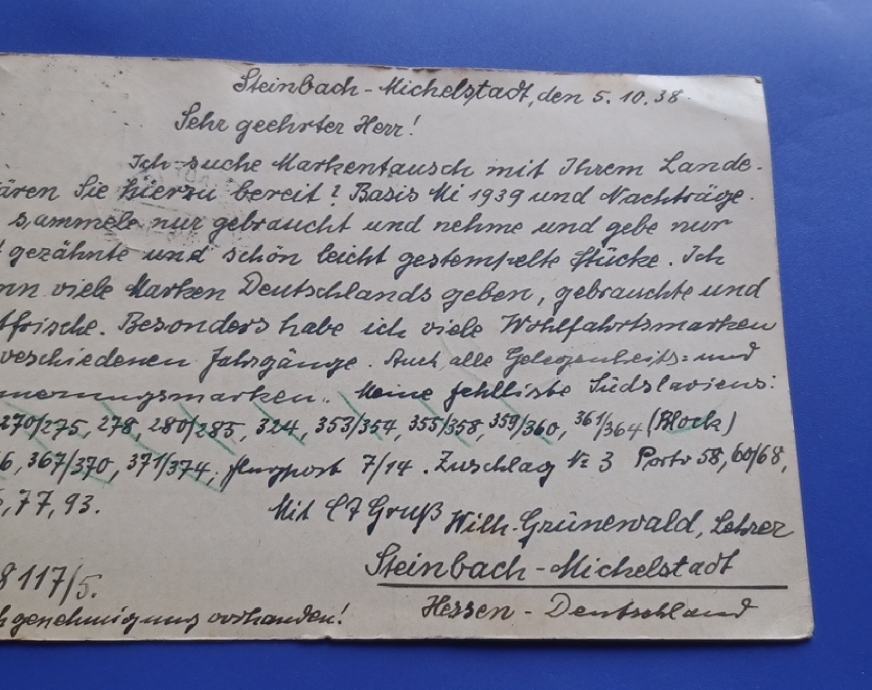 Steinbach - Michelstadt, den 5. 10. 38.
Sehr geehrter Herr!
Ich suche Markentausch mit Ihrem Lande.
ären Sie hierzu bereit? Basis Mi 1939 und Nachträge.
sammele nur gebraucht und nehme und gebe nur
gezähnte und schön leicht gestempelte Stücke. Ich
nn viele Marken Deutschlands geben, gebrauchte und
tfrische. Besonders habe ich viele Wohlfahrtsmarken
veschiedenen Jahrgänge. Auch alle Gelegenheits= und
nnerungsmarken. Meine Fehlliste Südslaviens:
270/275, 278, 280/285, 324, 353/354, 355/358, 359/360, 361/364 (Block)
6, 367/370, 371/374; flugpost 7/14. Zuschlag № 3 Porto 58, 60/68,
, 77, 93.
Mit Gruß Wilh. Grünewald, Lehrer
Steinbach - Michelstadt
8117/5.
Hessen - Deutschland
hgenehmigung vorhanden!